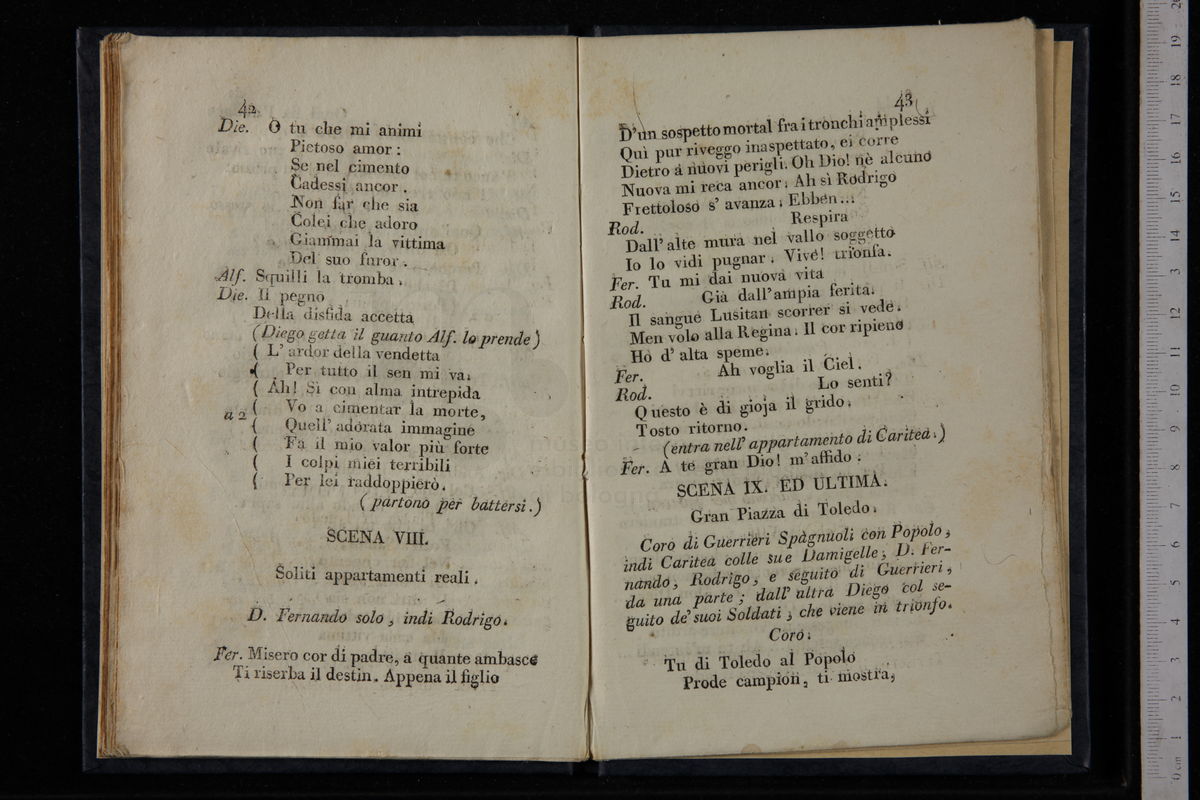 42
Die. O tu che mi animi
Pietoso amor:
Se nel cimento
Cadessi ancor.
Non far che sia
Colei che adoro
Giammai la vittima
Del suo furor.
Alf. Squilli la tromba.
Die. Il pegno
Della disfida accetta
(Diego getta il guanto Alf. lo prende)
( L' ardor della vendetta
( Per tutto il sen mi va.
( Ah! Sì con alma intrepida
a 2 ( Vo a cimentar la morte,
( Quell' adorata immagine
( Fa il mio valor più forte
( I colpi miei terribili
( Per lei raddoppierò.
(partono per battersi.)
SCENA VIII.
Soliti appartamenti reali.
D. Fernando solo, indi Rodrigo.
Fer. Misero cor di padre, a quante ambasce
Ti riserba il destin. Appena il figlio
43
D'un sospetto mortal fra i tronchi amplessi
Quì pur riveggo inaspettato, ei corre
Dietro a nuovi perigli. Oh Dio! nè alcuno
Nuova mi reca ancor. Ah sì Rodrigo
Frettoloso s' avanza. Ebben...
Rod. Respira
Dall' alte mura nel vallo soggetto
Io lo vidi pugnar. Vive! trionfa.
Fer. Tu mi dai nuova vita
Rod. Già dall'ampia ferita.
Il sangue Lusitan scorrer si vede.
Men volo alla Regina. Il cor ripieno
Ho d' alta speme.
Fer. Ah voglia il Ciel.
Rod. Lo senti?
Questo è di gioja il grido.
Tosto ritorno.
(entra nell' appartamento di Caritea.)
Fer. A te gran Dio! m'affido.
SCENA IX. ED ULTIMA.
Gran Piazza di Toledo.
Coro di Guerrieri Spagnuoli con Popolo,
indi Caritea colle sue Damigelle, D. Fer-
nando, Rodrigo, e seguito di Guerrieri,
da una parte; dall' altra Diego col se-
guito de' suoi Soldati, che viene in trionfo.
Coro.
Tu di Toledo al Popolo
Prode campion, ti mostra,